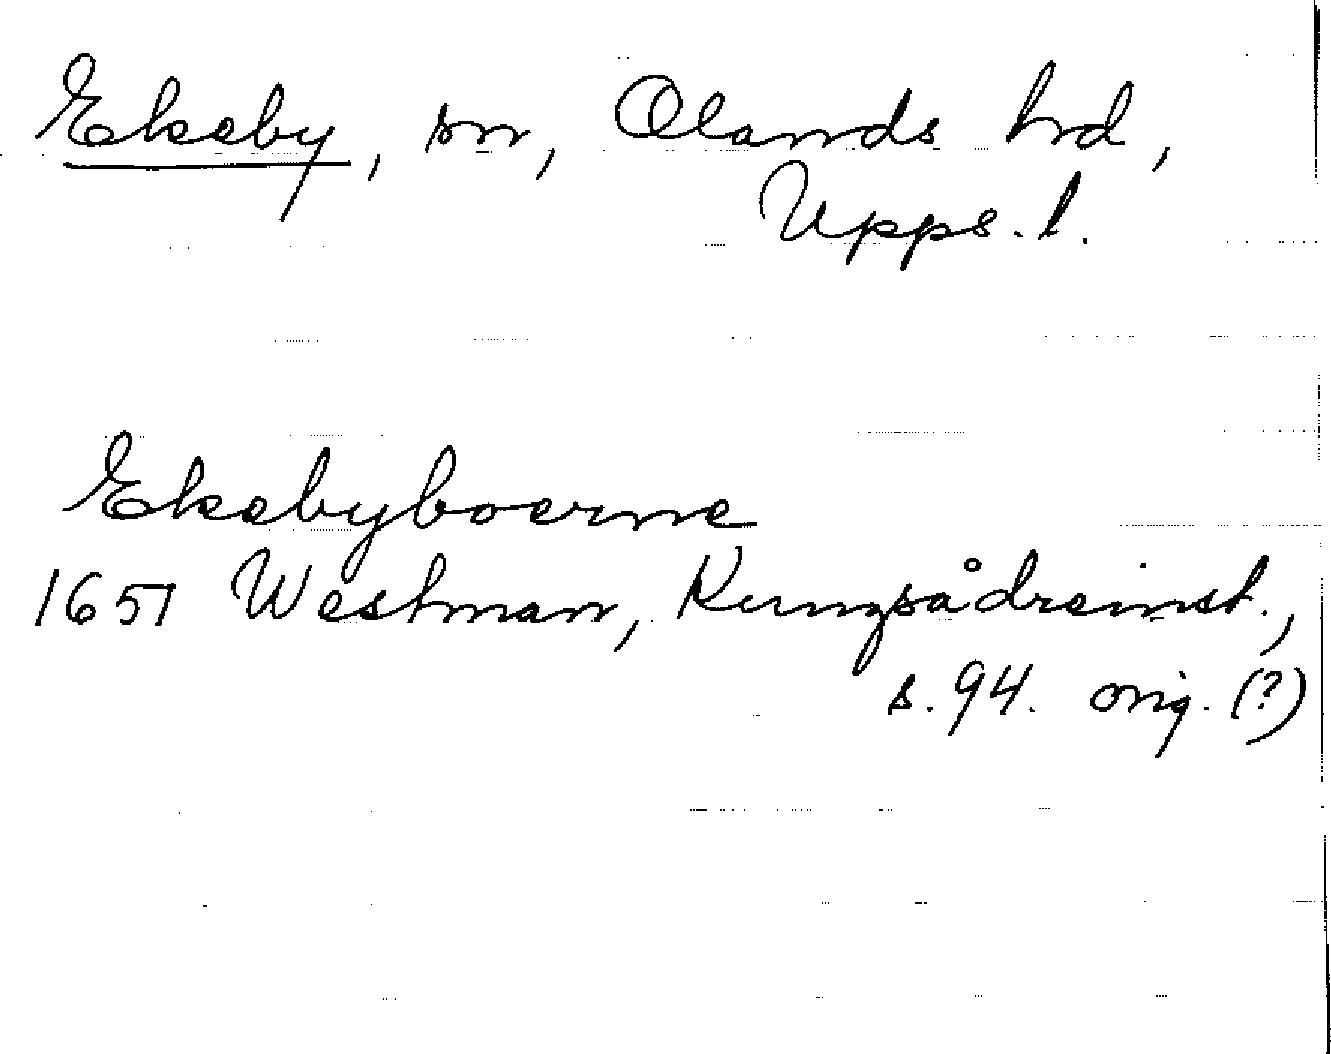 Ekeby, sn, Olands hrd,
Upps. l.
Ekebyboerne
1651 Westman, Kungsådreinst.,
s. 94. orig. (?)